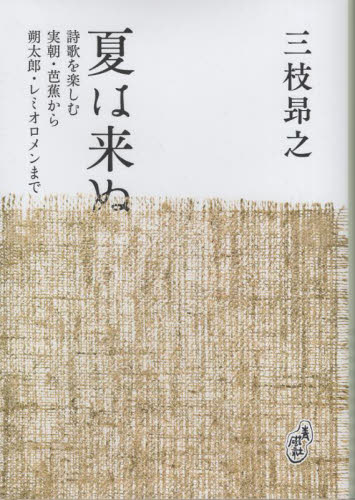 三枝昻之
夏は来ぬ
詩歌を楽しむ
実朝・芭蕉から
朔太郎・レミオロメンまで
青磁社